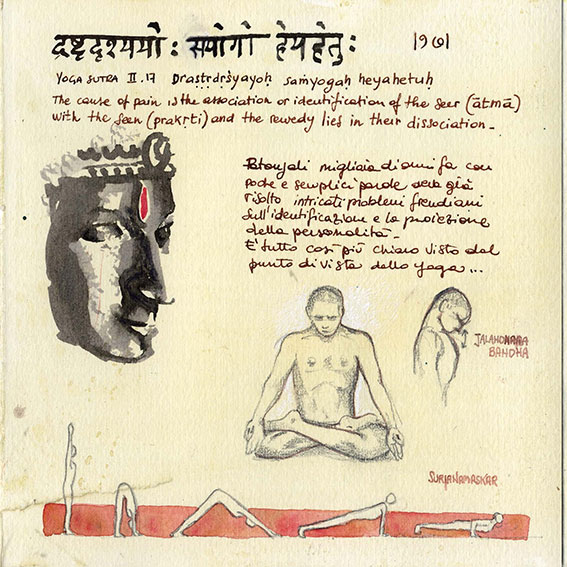 द्रष्टृदृश्ययोः सयोगो हेयहेतुः ।१७।
YOGA SUTRA II.17 Draṣṭṛdṛśyayoḥ saṁyogaḥ heyahetuḥ
The cause of pain is the association or identification of the seer (ātmā)
with the seen (prakṛti) and the remedy lies in their dissociation_
Patanjali migliaia di anni fa con
poche e semplici parole già
risolto intricati problemi freudiani
sull'identificazione e la proiezione
della personalità_
E' tutto così più chiaro visto dal
punto di vista dello yoga...
JALANDHARA
BANDHA
SURYANAMASKAR